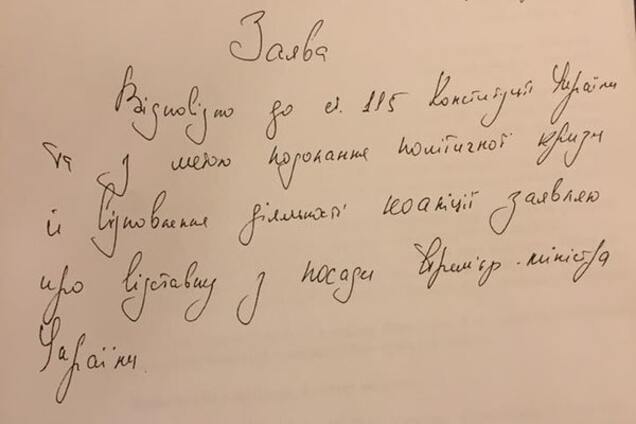 Заява
Відповідно до ст. 115 Конституції України
та з метою подолання політичної кризи
й відновлення діяльності коаліції заявляю
про відставку з посади Прем'єр-міністра
України.